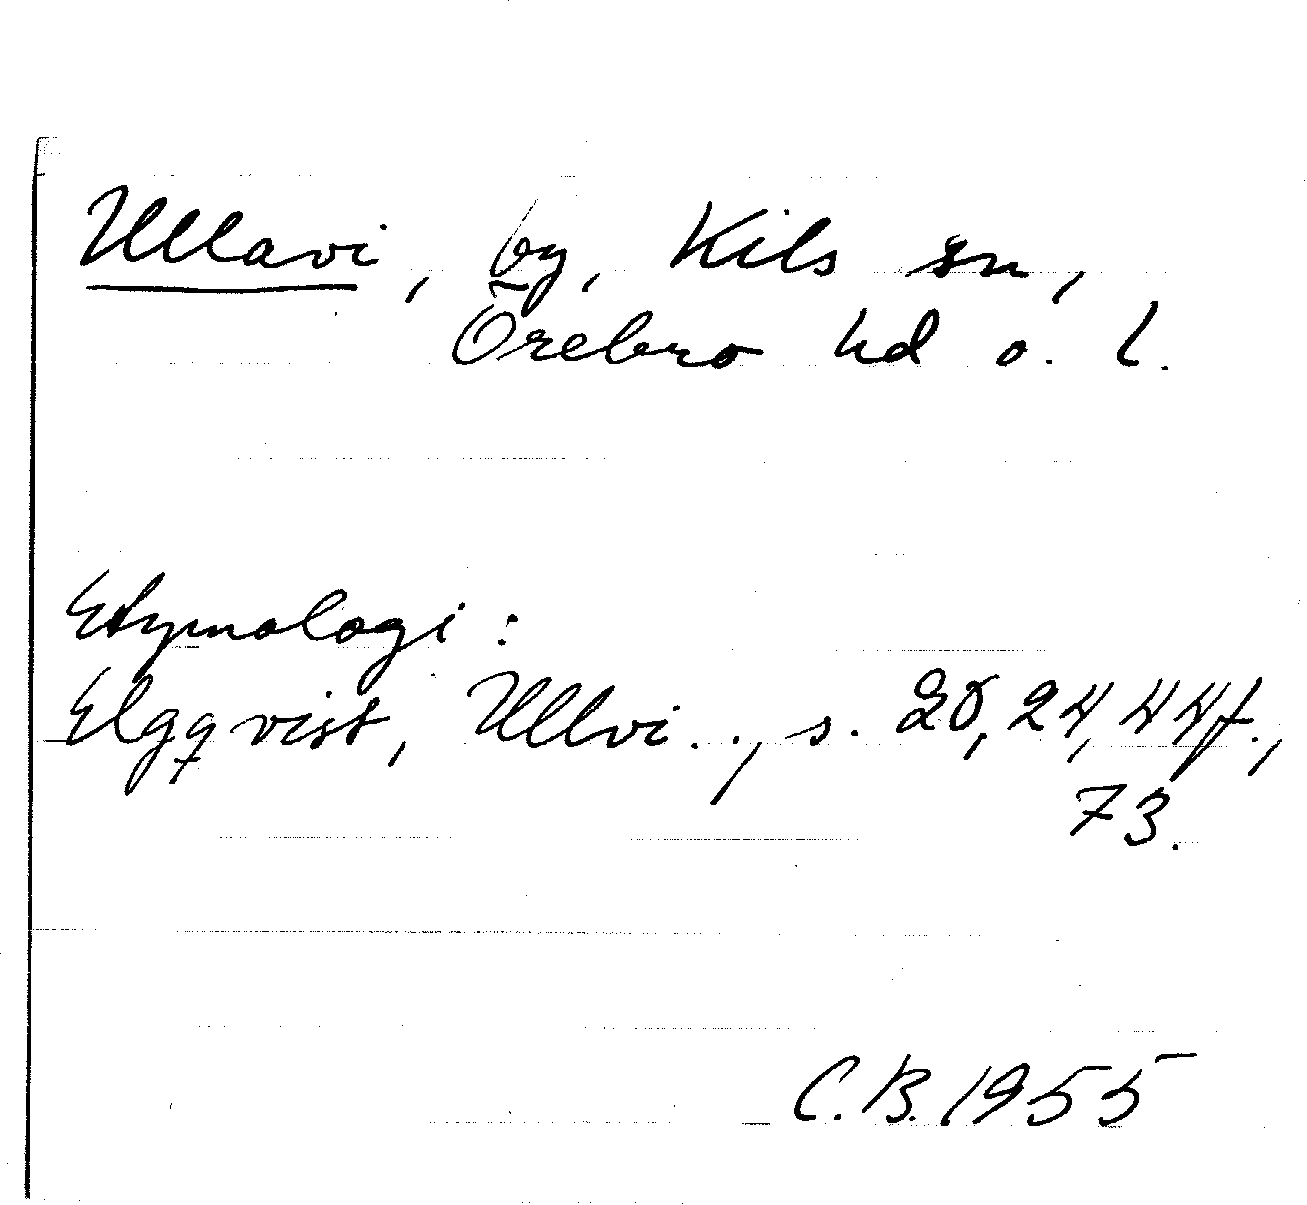 Ullavi, by, Kils sn,
Örebro hd o. l.
Etymologi:
Elgqvist, Ullvi.., s. 20, 24, 44f.,
73.
C.B. 1955